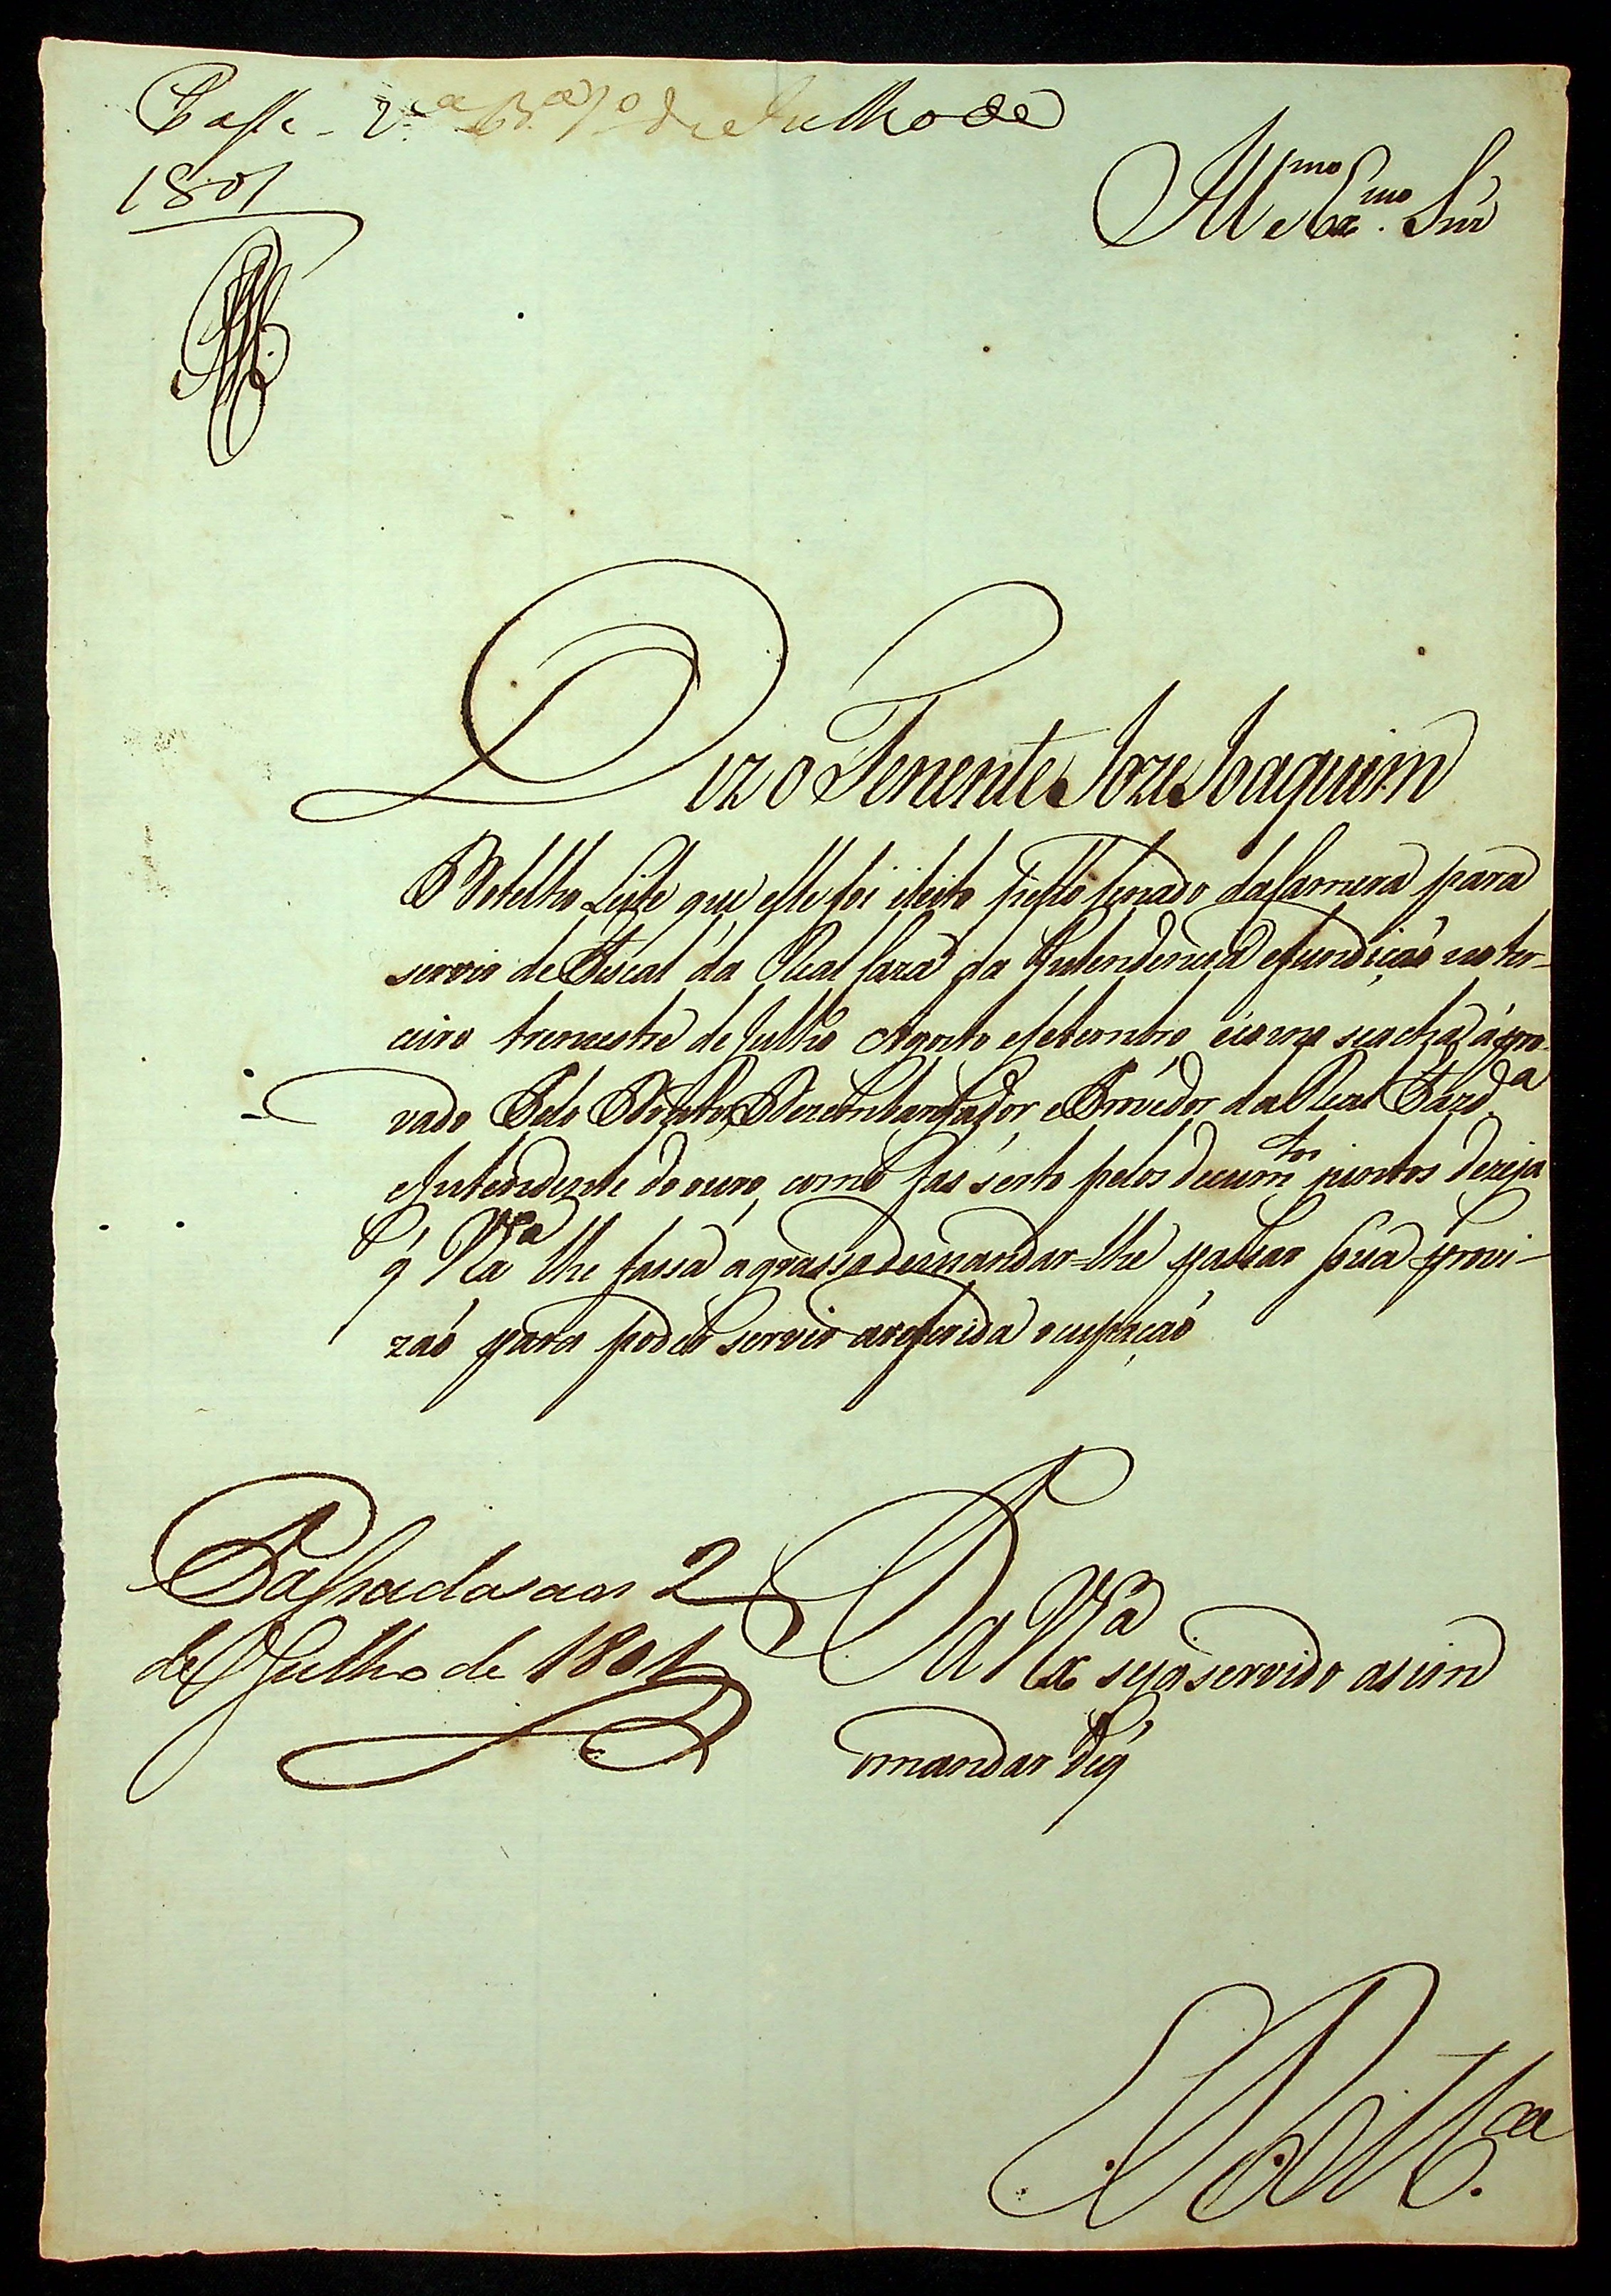 Passe - V.ª B.ª 1º de Julho de
1801
Illmo e Exmo. Snr
Diz o Tenente Joze Joaquim
Botelho Leite que elle foi eleito pello senado da Camera para
servir de Fiscal da Real Caza da Intendencia e fundição no ter-
ceiro tremestre de Julho Agosto e Setembro é como se acha apro-
vado Pelo Dezembargador e Provedor da Real Fazdª
e Intendente do ouro, como fas serto pelos docum.tos juntos dezeja
q' V Exª lhe fassa a grassa de mandar-lhe passar sua provi-
zaó para poder servir a referida ocupaçaó
Passada aos 2
de Julho de 1801
P a V Exª seja servido asim
mandar diq'
E R Mce.